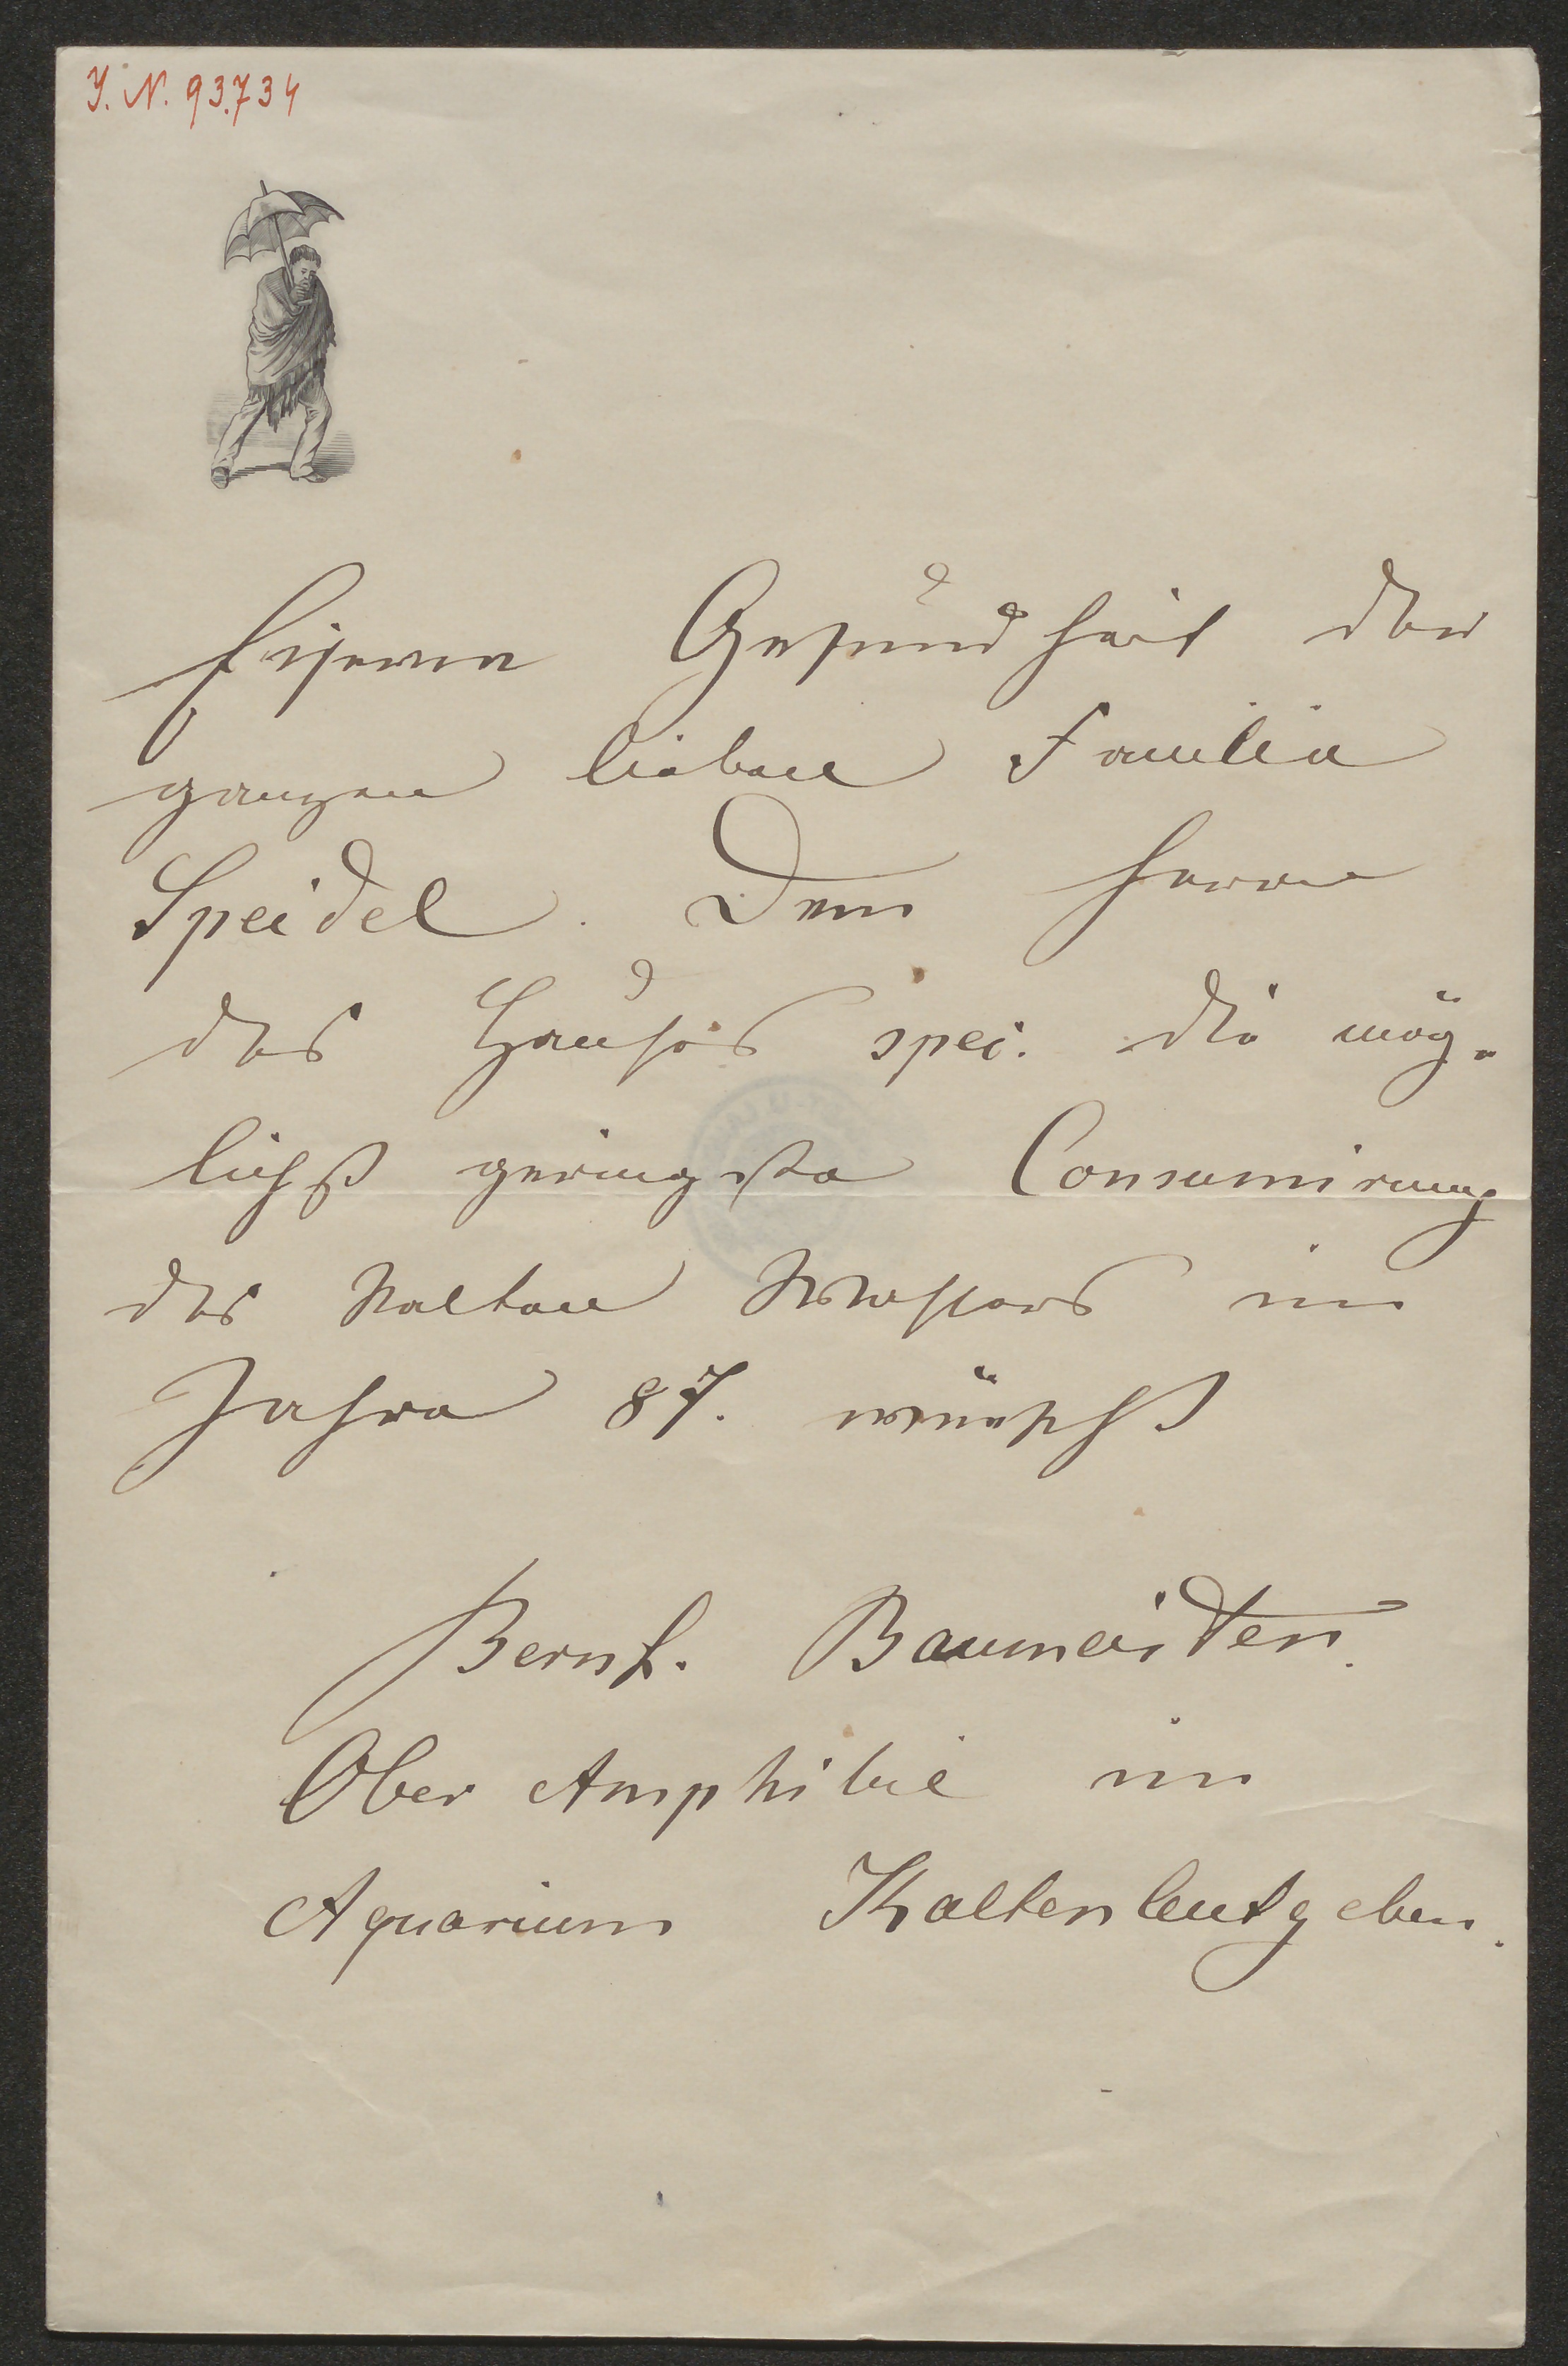 J. N. 93.734
Eiserne Gesundheit der
ganzen lieben Familie
Speidel. Dem Herrn
des Hauses spei. die mög-
lichst geringste Consumirung
des Kalten Wassers im
Jahre 87. wünscht
Bernh. Baumeister.
Ober Amphibie im
Aquarium Kaltenleutgeben.